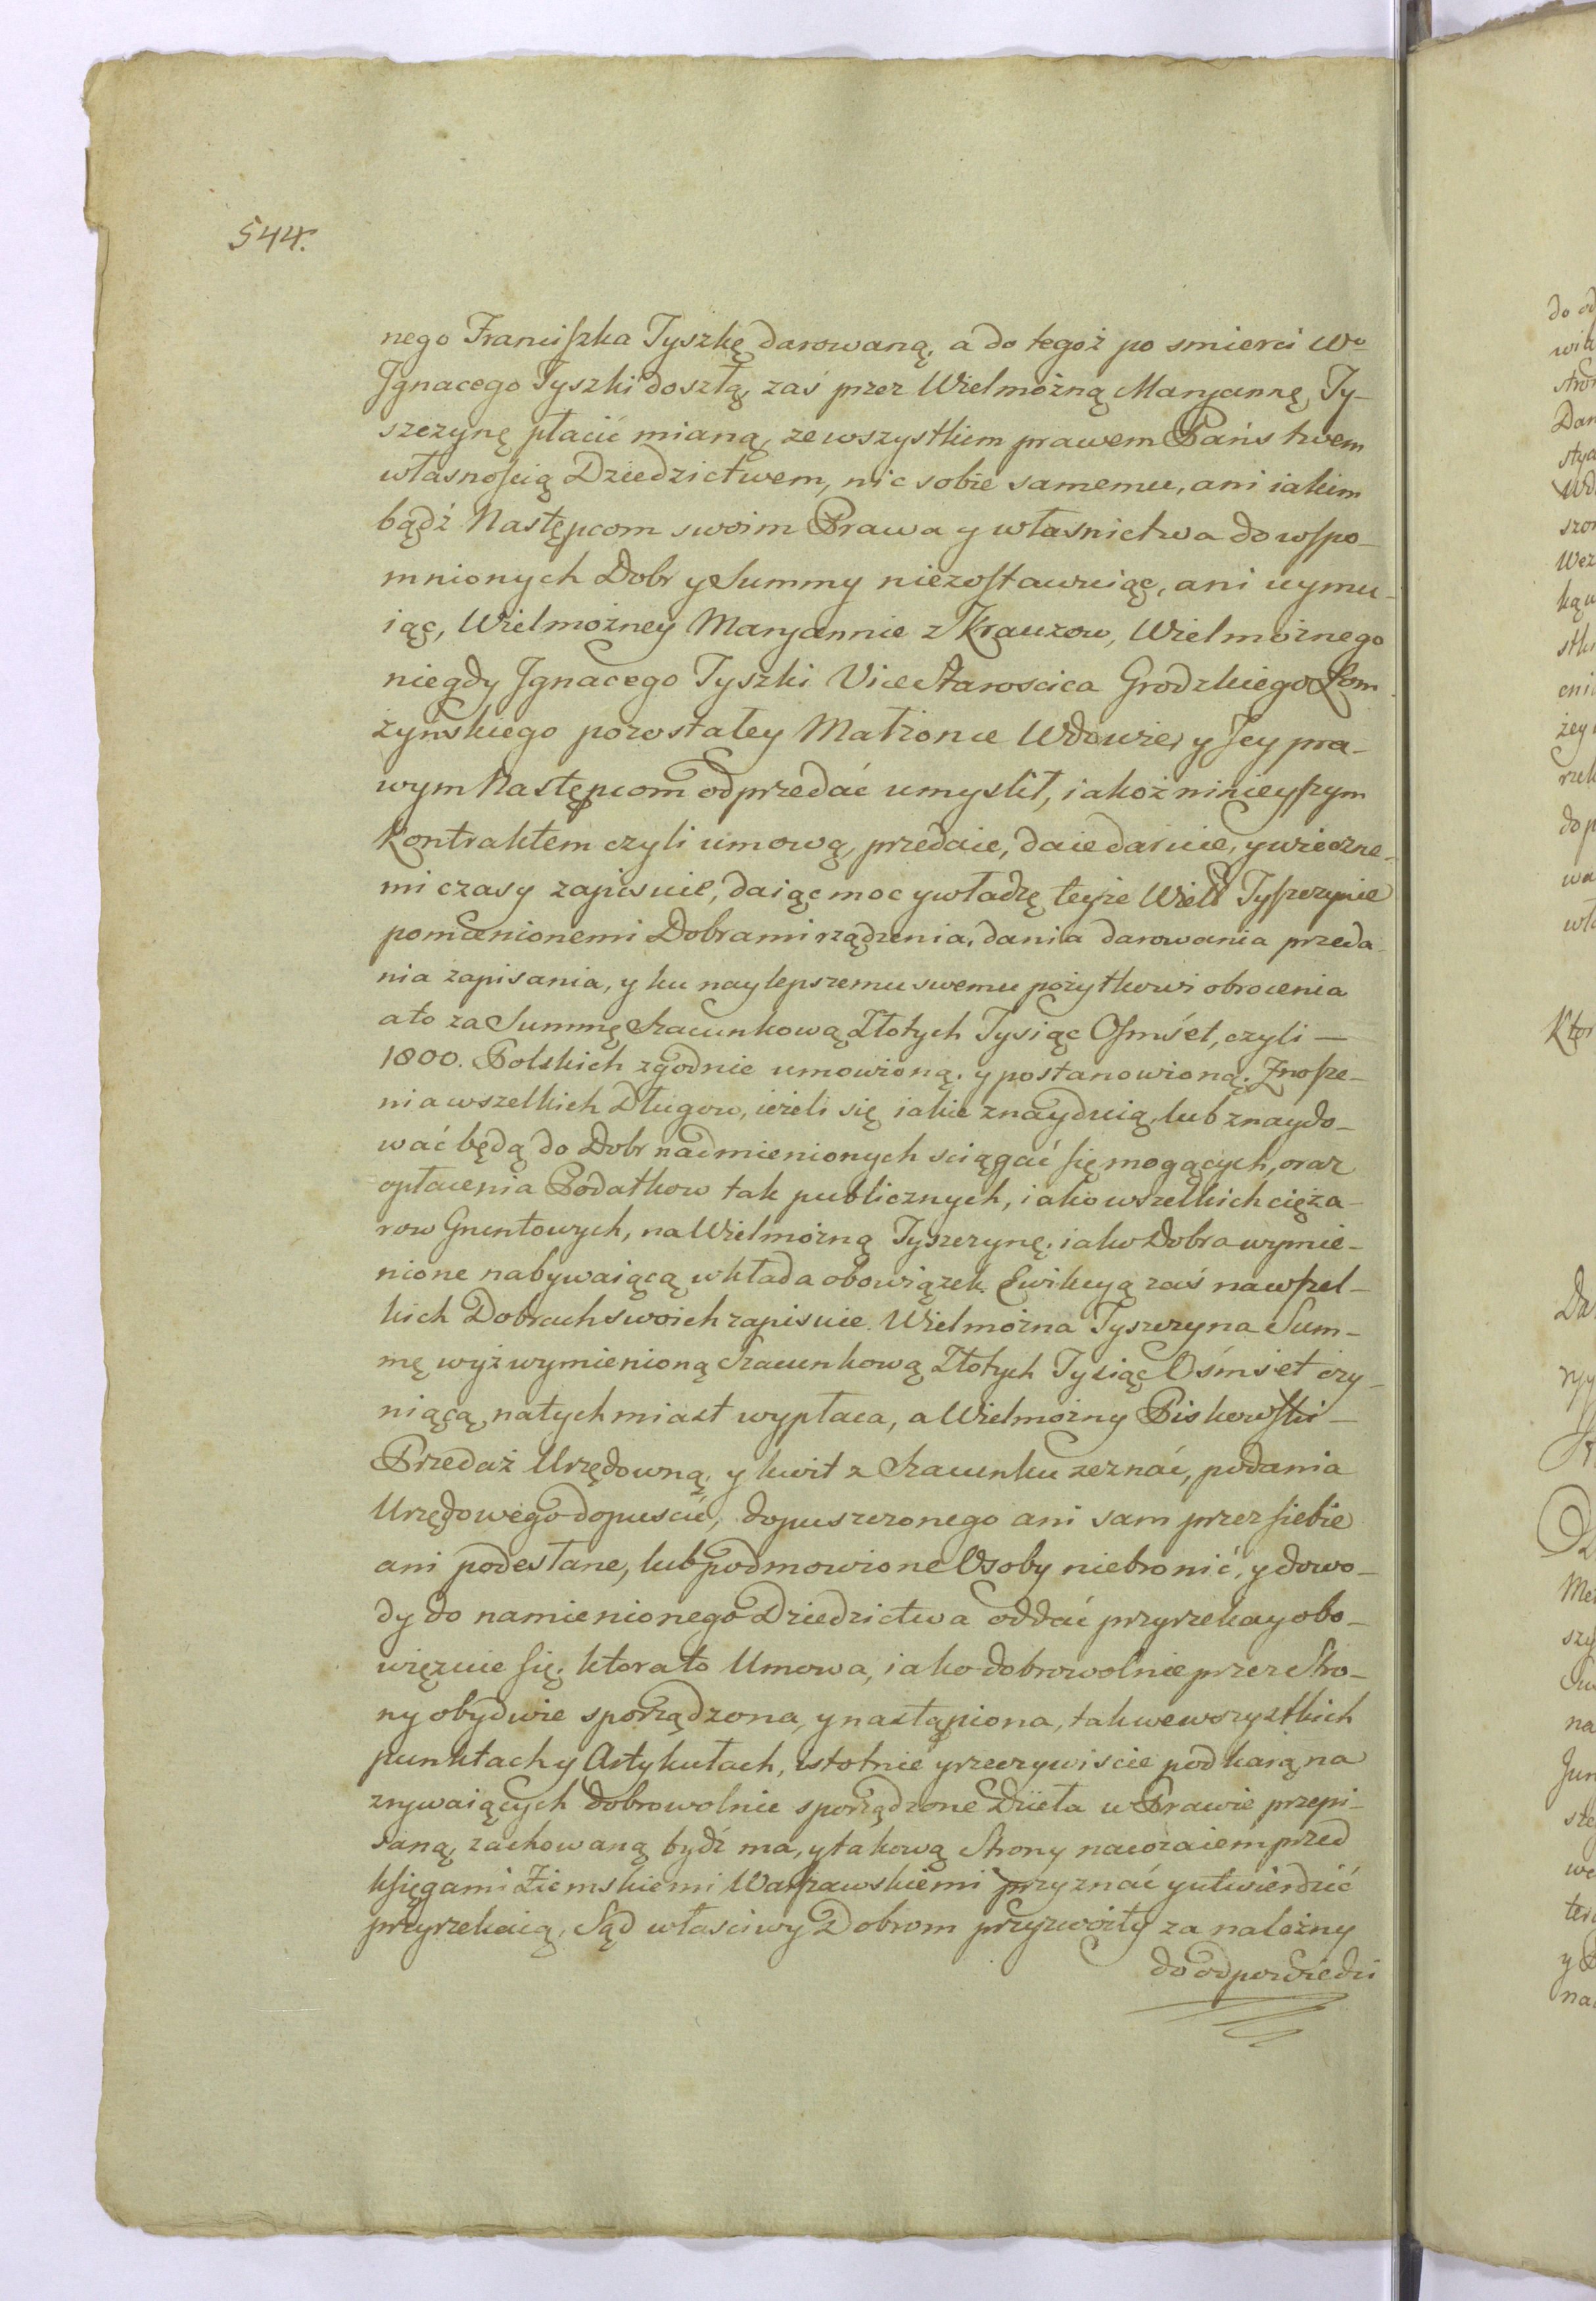 544.
nego Franciszka Tyszkę darowaną, a do tegoż po smierci Wo
Jgnacego Tyszki doszłą, zaś przez Wielmożną Maryannę Ty-
szczynę płacić mianą, ze wszystkiem prawem Państwem
własnością Dziedzictwem, nic sobie samemu, ani iakim
bądź Następcom swoim Prawa y własnictwa do wspo-
mnionych Dobr y Summy niezostawuiąc, ani uymu-
iąc, Wielmożney Maryannie z Krauzow, Wielmożnego
niegdy Jgnacego Tyszki Vice Staroscica Grodzkiego Łom-
żynskiego pozostałey Małżonce Wdowie, y Jey pra-
wym Następcom odprzedać umyslił, iakoż ninieyszym
Kontraktem czyli umową, przedaie, daie daruie, y wieczne-
mi czasy zapisuie, daiąc moc y władzę teyże Wiel Tyszczynie
pomienionemi Dobrami rządzenia, dania darowania przeda-
nia zapisania, y ku naylepszemu swemu pożytkowi obrocenia
a to za Summę Szacunkową Złotych Tysiąc Osmset, czyli —
1800. Polskich zgodnie umowioną, y postanowioną. Znosze-
nia wszelkich Długow, ieżeli się iakie znayduią, lub znaydo-
wać będą do Dobr nadmienionych sciągać się mogących, oraz
opłacenia Podatkow tak publicznych, iako wszelkich cięża-
row Gruntowych, na Wielmożną Tyszczynę, iako Dobra wymie-
nione nabywaiącą wkłada obowiązek. Ewikcyą zaś na wszel-
kich Dobrach swoich zapisuie. Wielmożna Tyszczyna Sum-
mę wyż wymienioną Szacunkową Złotych Tysiąc Ośmset czy-
niącą, natychmiast wypłaca, a Wielmożny Piskowski —
Przedaż Urzędowną, y kwit z Szacunku zeznać, podania
Urzędowego dopuscić, dopuszczonego ani sam przez siebie
ani podesłane, lub podmowione Osoby niebronić, y dowo-
dy do namienionego Dziedzictwa oddać przyrzeka y obo-
więzuie się, ktora to Umowa, iako dobrowolnie przez Stro-
ny obydwie sporządzona, y nastąpiona, tak we wszystkich
punktach y Artykułach, istotnie y rzeczywiscie pod karą na
zrywaiących dobrowolnie sporządzone Dzieła w Prawie przepi-
saną, zachowaną bydź ma, y takową Strony nawzaiem przed
księgami Ziemskiemi Warszawskiemi przyznać y utwierdzić
przyrzekaią, Sąd własciwy Dobrom przyzwoity za należny
do odpowiedzi